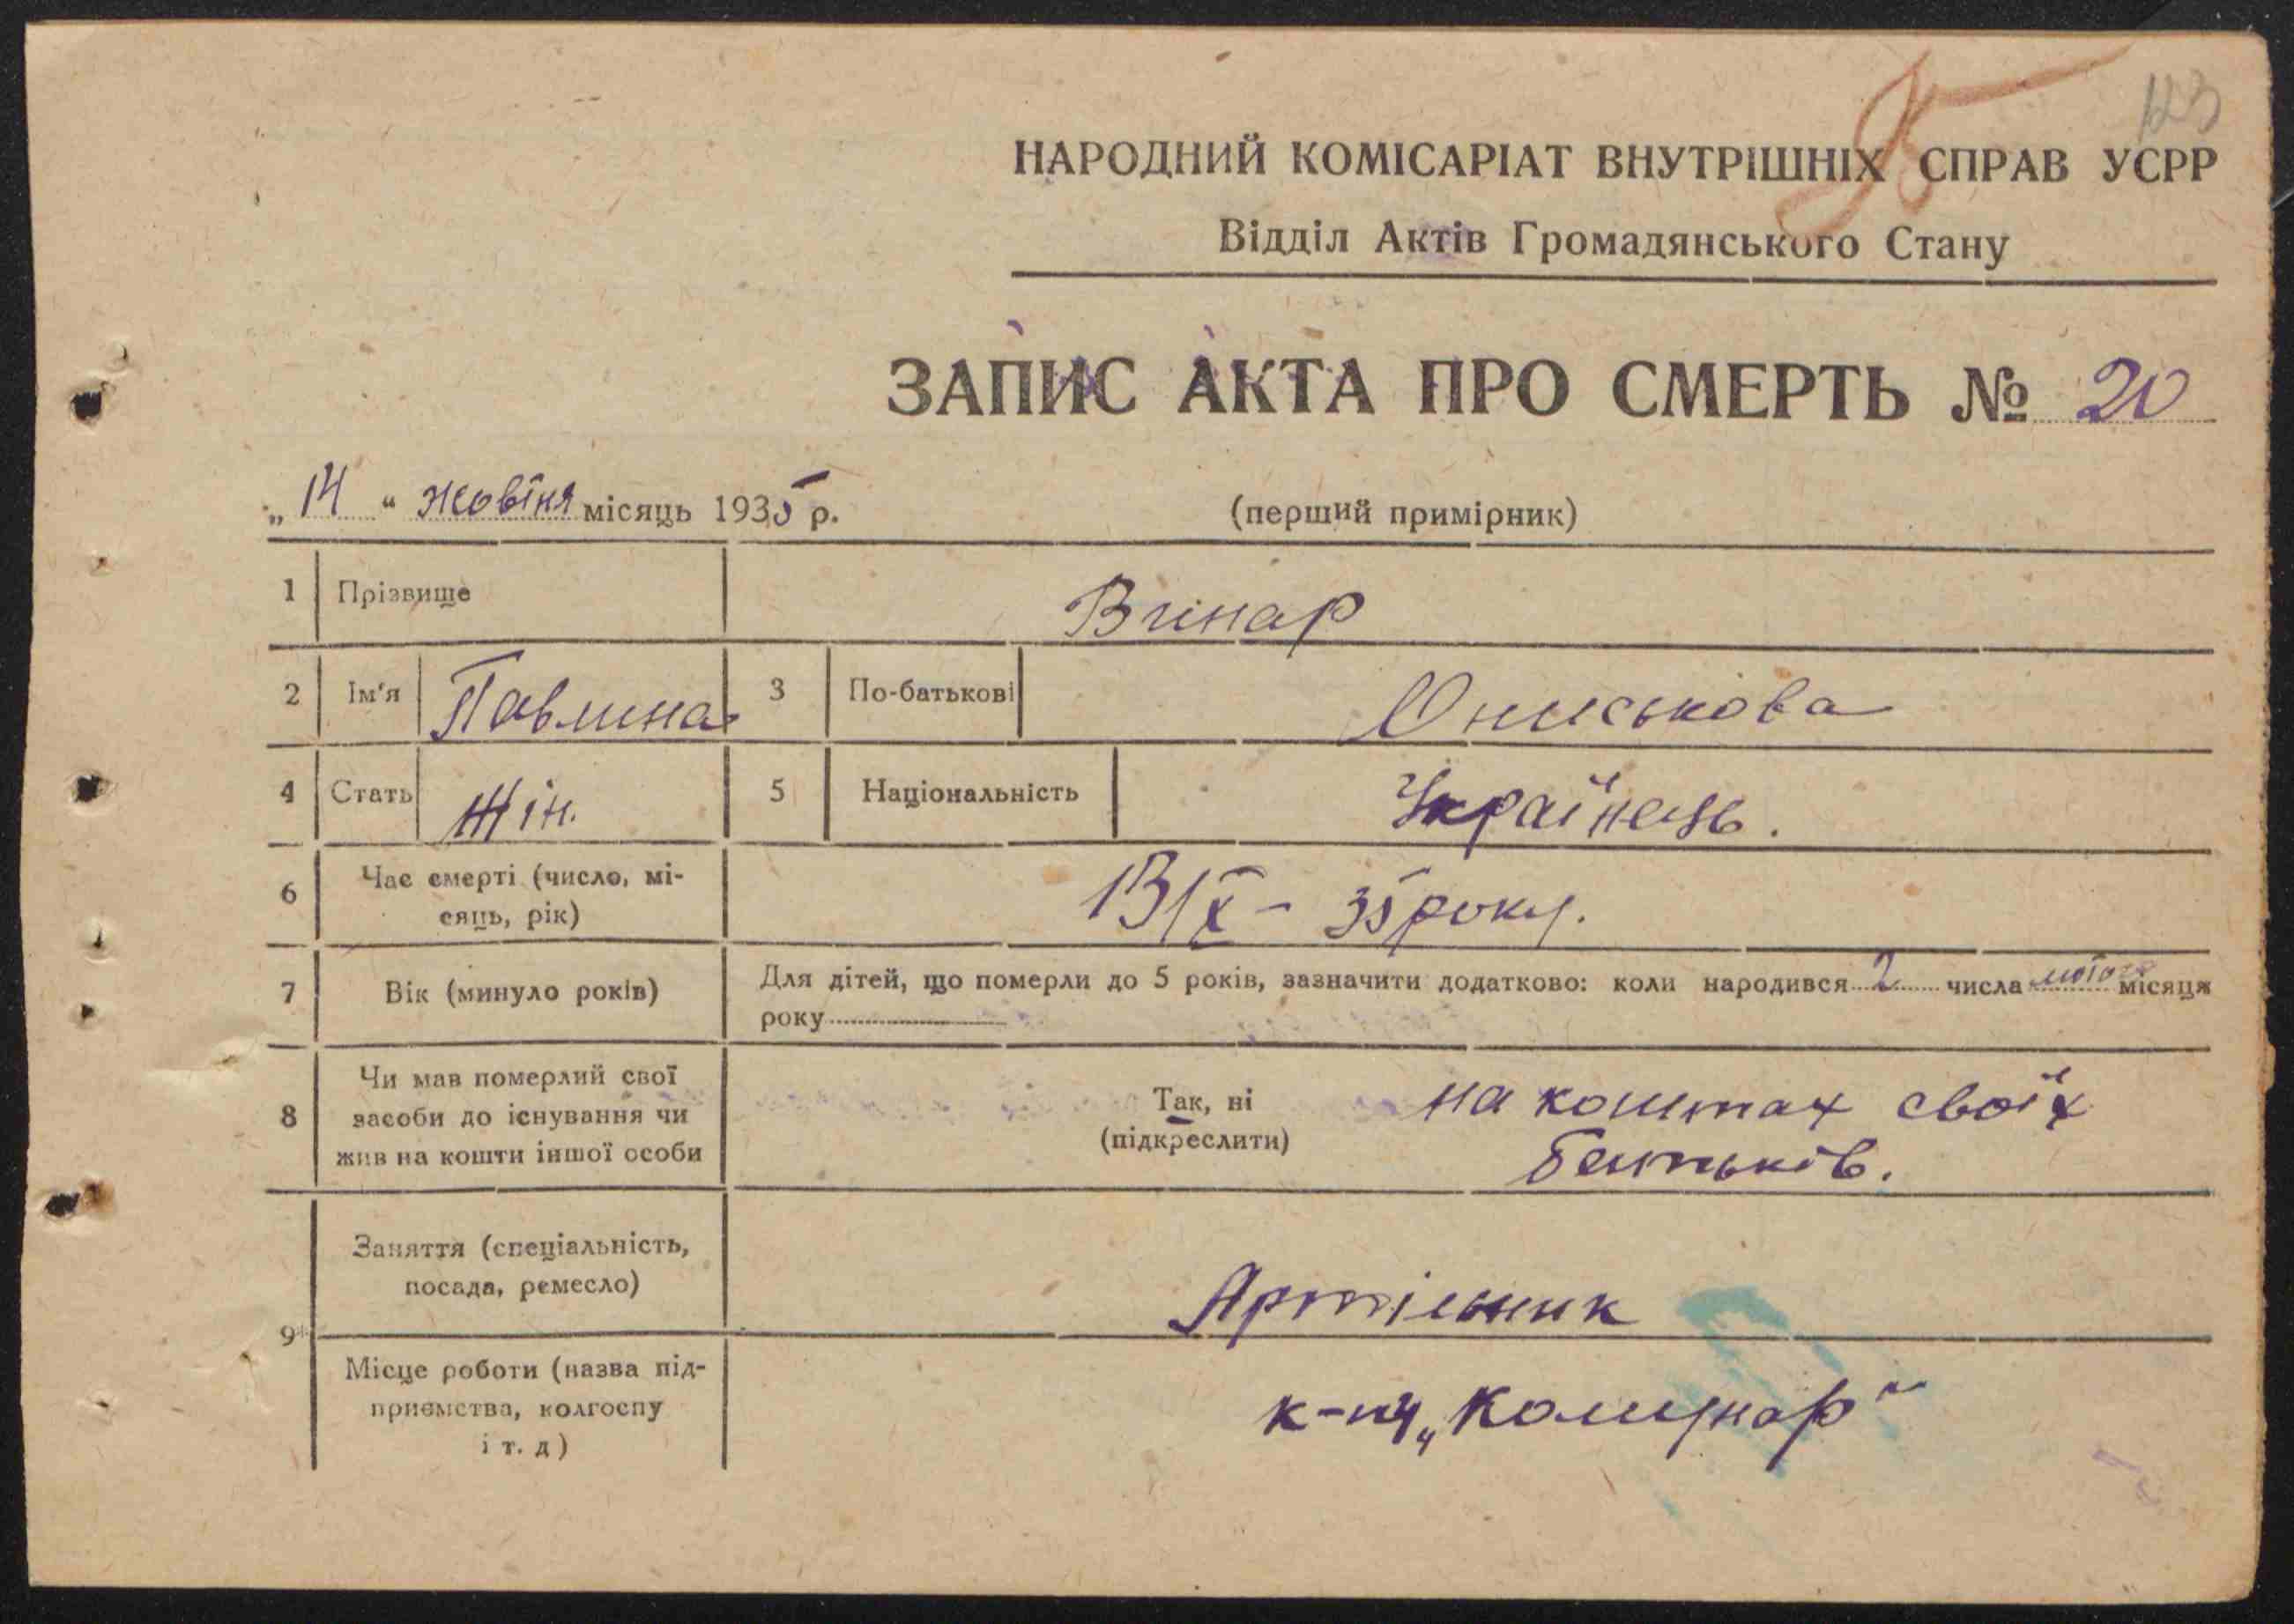 123
НАРОДНИЙ КОМІСАРІАТ ВНУТРІШНІХ СПРАВ УСРР
Відділ Актів Громадянського Стану
ЗАПИС АКТА ПРО СМЕРТЬ № 20
„14“ жовтня місяць 1935 р.
(перший примірник)
1 Прізвище Винар
2 Ім'я Павлина 3 По-батькові Ониськова
4 Стать Жін. 5 Національність Українець.
6 Час смерті (число, мі-
сяць, рік) 13/X – 35 року.
7 Вік (минуло років) Для дітей, що померли до 5 років, зазначити додатково: коли народився 2 числа лютого місяця
року
8 Чи мав померлий свої
засоби до існування чи
жив на кошти іншої особи
Так, ні
(підкреслити)
на коштах своїх
батьків.
9 Заняття (спеціальність,
посада, ремесло) Артільник
Місце роботи (назва під-
приємства, колгоспу
і т. д) к-пу „Комунар"